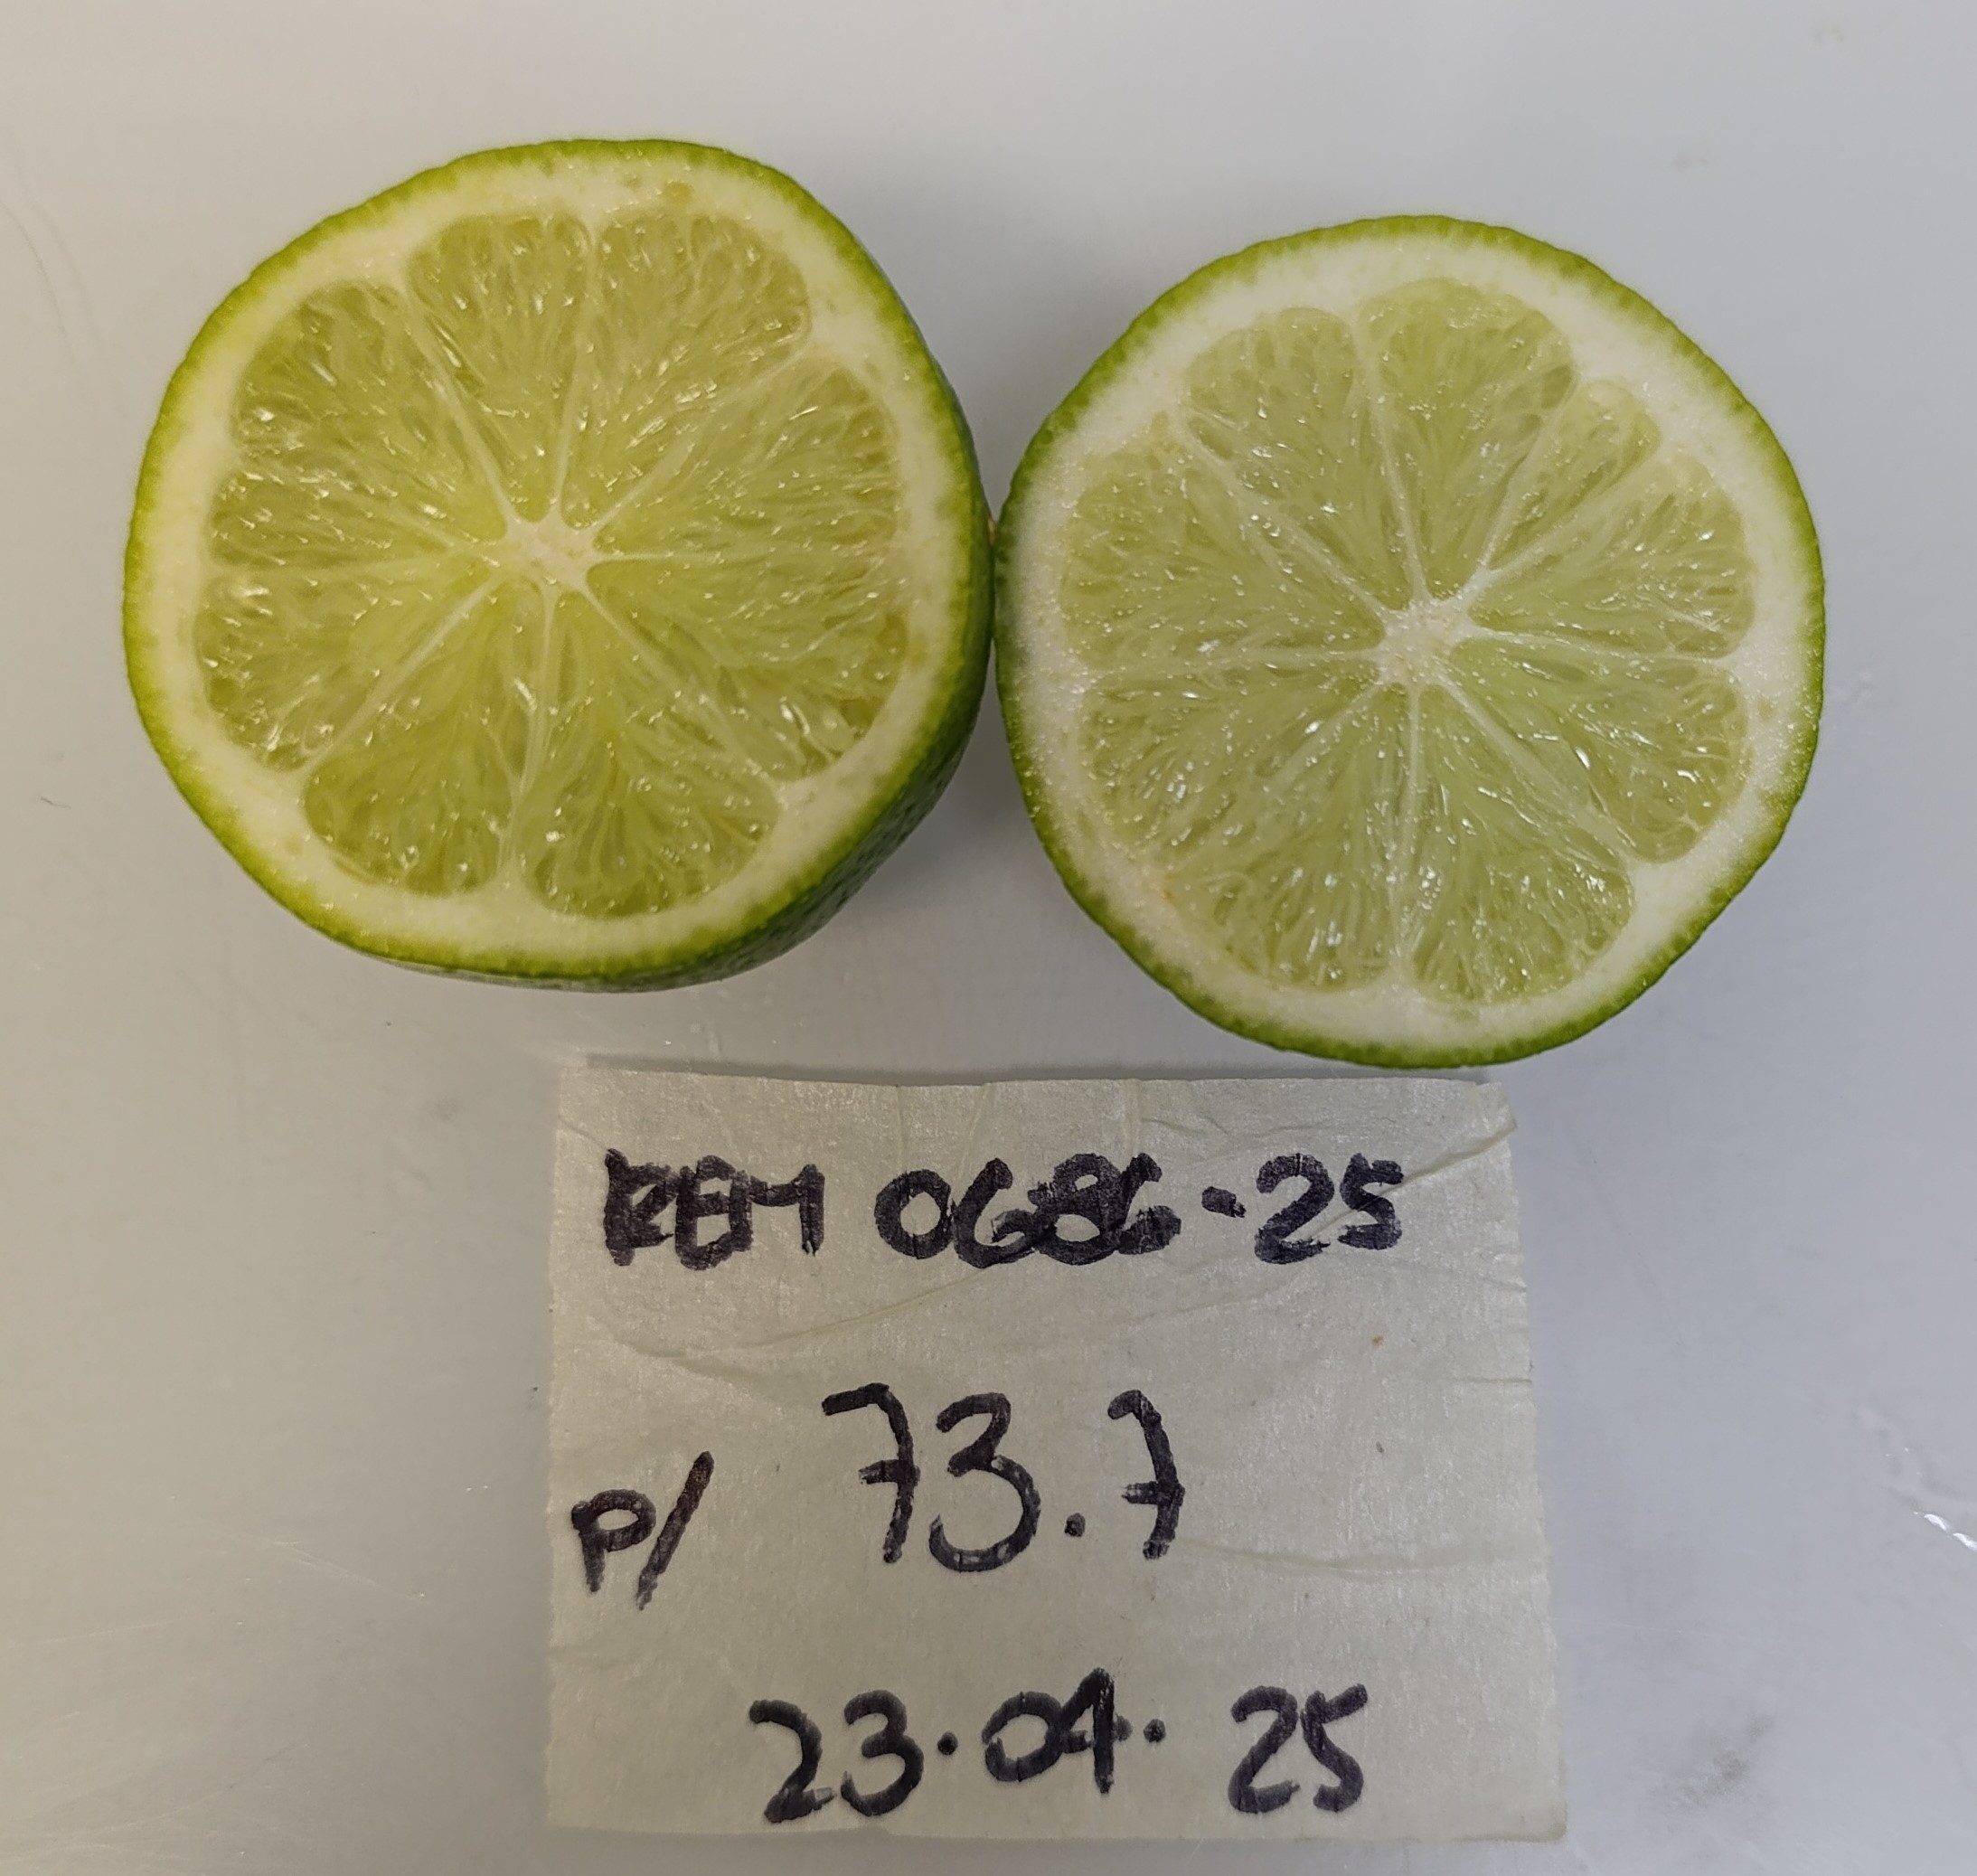 REM 0686-25
P/ 73.7
23.04.25